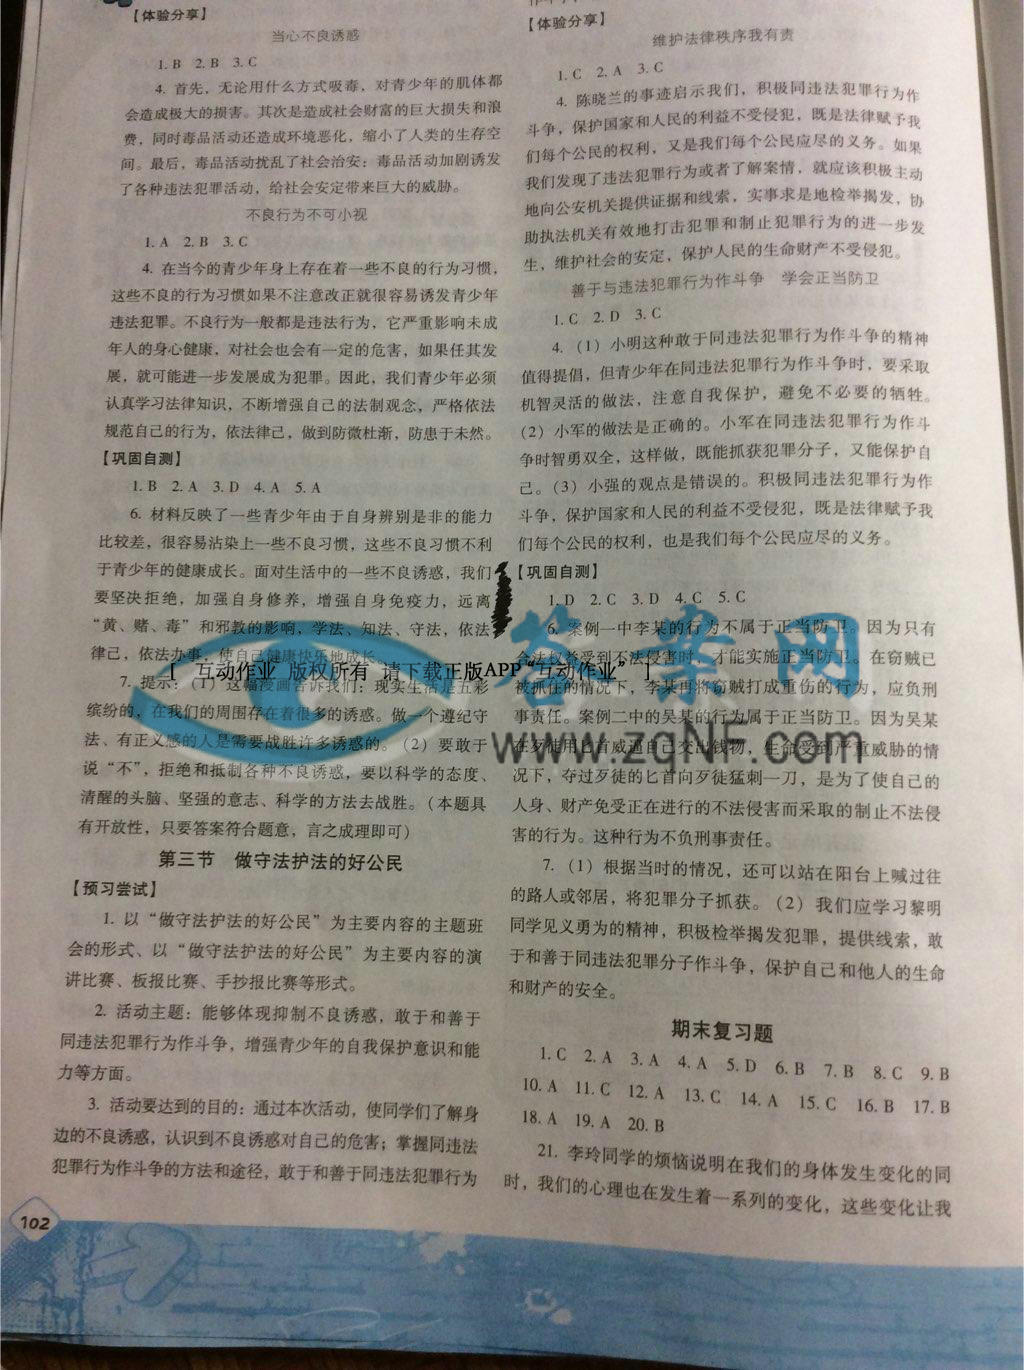 【体验分享】
当心不良诱惑
1. B 2. B 3. C
4. 首先，无论用什么方式吸毒，对青少年的肌体都
会造成极大的损害。其次是造成社会财富的巨大损失和浪
费，同时毒品活动还造成环境恶化，缩小了人类的生存空
间。最后，毒品活动扰乱了社会治安：毒品活动加剧诱发
了各种违法犯罪活动，给社会安定带来巨大的威胁。
不良行为不可小视
1. A 2. B 3. C
4. 在当今的青少年身上存在着一些不良的行为习惯，
这些不良的行为习惯如果不注意改正就很容易诱发青少年
违法犯罪。不良行为一般都是违法行为，它严重影响未成
年人的身心健康，对社会也会有一定的危害，如果任其发
展，就可能进一步发展成为犯罪。因此，我们青少年必须
认真学习法律知识，不断增强自己的法制观念，严格依法
规范自己的行为，依法律己，做到防微杜渐，防患于未然。
【巩固自测】
1. B 2. A 3. D 4. A 5. A
6. 材料反映了一些青少年由于自身辨别是非的能力
比较差，很容易沾染上一些不良习惯，这些不良习惯不利
于青少年的健康成长。面对生活中的一些不良诱惑，我们
要坚决拒绝，加强自身修养，增强自身免疫力，远离
“黄、赌、毒”和邪教的影响，学法、知法、守法，依法
律己，依法办事，使自己健康快乐地成长。
7. 提示：（1）这幅漫画告诉我们：现实生活是五彩
缤纷的，在我们的周围存在着很多的诱惑。做一个遵纪守
法、有正义感的人是需要战胜许多诱惑的。（2）要敢于
说“不”，拒绝和抵制各种不良诱惑，要以科学的态度、
清醒的头脑、坚强的意志、科学的方法去战胜。（本题具
有开放性，只要答案符合题意，言之成理即可）
第三节 做守法护法的好公民
【预习尝试】
1. 以“做守法护法的好公民”为主要内容的主题班
会的形式、以“做守法护法的好公民”为主要内容的演
讲比赛、板报比赛、手抄报比赛等形式。
2. 活动主题：能够体现抑制不良诱惑，敢于和善于
同违法犯罪行为作斗争，增强青少年的自我保护意识和能
力等方面。
3. 活动要达到的目的：通过本次活动，使同学们了解身
边的不良诱惑，认识到不良诱惑对自己的危害；掌握同违法
犯罪行为作斗争的方法和途径，敢于和善于同违法犯罪行为
102
【体验分享】
维护法律秩序我有责
1. C 2. A 3. C
4. 陈晓兰的事迹启示我们，积极同违法犯罪行为作
斗争，保护国家和人民的利益不受侵犯，既是法律赋予我
们每个公民的权利，又是我们每个公民应尽的义务。如果
我们发现了违法犯罪行为或者了解案情，就应该积极主动
地向公安机关提供证据和线索，实事求是地检举揭发，协
助执法机关有效地打击犯罪和制止犯罪行为的进一步发
生，维护社会的安定，保护人民的生命财产不受侵犯。
善于与违法犯罪行为作斗争 学会正当防卫
1. C 2. D 3. C
4. （1）小明这种敢于同违法犯罪行为作斗争的精神
值得提倡，但青少年在同违法犯罪行为作斗争时，要采取
机智灵活的做法，注意自我保护，避免不必要的牺牲。
（2）小军的做法是正确的。小军在同违法犯罪行为作斗
争时智勇双全，这样做，既能抓获犯罪分子，又能保护自
己。（3）小强的观点是错误的。积极同违法犯罪行为作
斗争，保护国家和人民的利益不受侵犯，既是法律赋予我
们每个公民的权利，也是我们每个公民应尽的义务。
【巩固自测】
1. D 2. C 3. D 4. C 5. C
6. 案例一中李某的行为不属于正当防卫。因为只有
合法权益受到不法侵害时，才能实施正当防卫。在窃贼已
被抓住的情况下，李某再将窃贼打成重伤的行为，应负刑
事责任。案例二中的吴某的行为属于正当防卫。因为吴某
在歹徒用匕首威逼自己交出钱物，生命受到严重威胁的情
况下，夺过歹徒的匕首向歹徒猛刺一刀，是为了使自己的
人身、财产免受正在进行的不法侵害而采取的制止不法侵
害的行为。这种行为不负刑事责任。
7. （1）根据当时的情况，还可以站在阳台上喊过往
的路人或邻居，将犯罪分子抓获。（2）我们应学习黎明
同学见义勇为的精神，积极检举揭发犯罪，提供线索，敢
于和善于同违法犯罪分子作斗争，保护自己和他人的生命
和财产的安全。
期末复习题
1. C 2. A 3. A 4. A 5. D 6. B 7. B 8. C 9. B
10. A 11. C 12. A 13. C 14. A 15. C 16. B 17. B
18. A 19. A 20. B
21. 李玲同学的烦恼说明在我们的身体发生变化的同
时，我们的心理也在发生着一系列的变化，这些变化让我
[ “互动作业”版权所有 请下载正版APP“互动作业” ]
答案网
www.zqNF.com